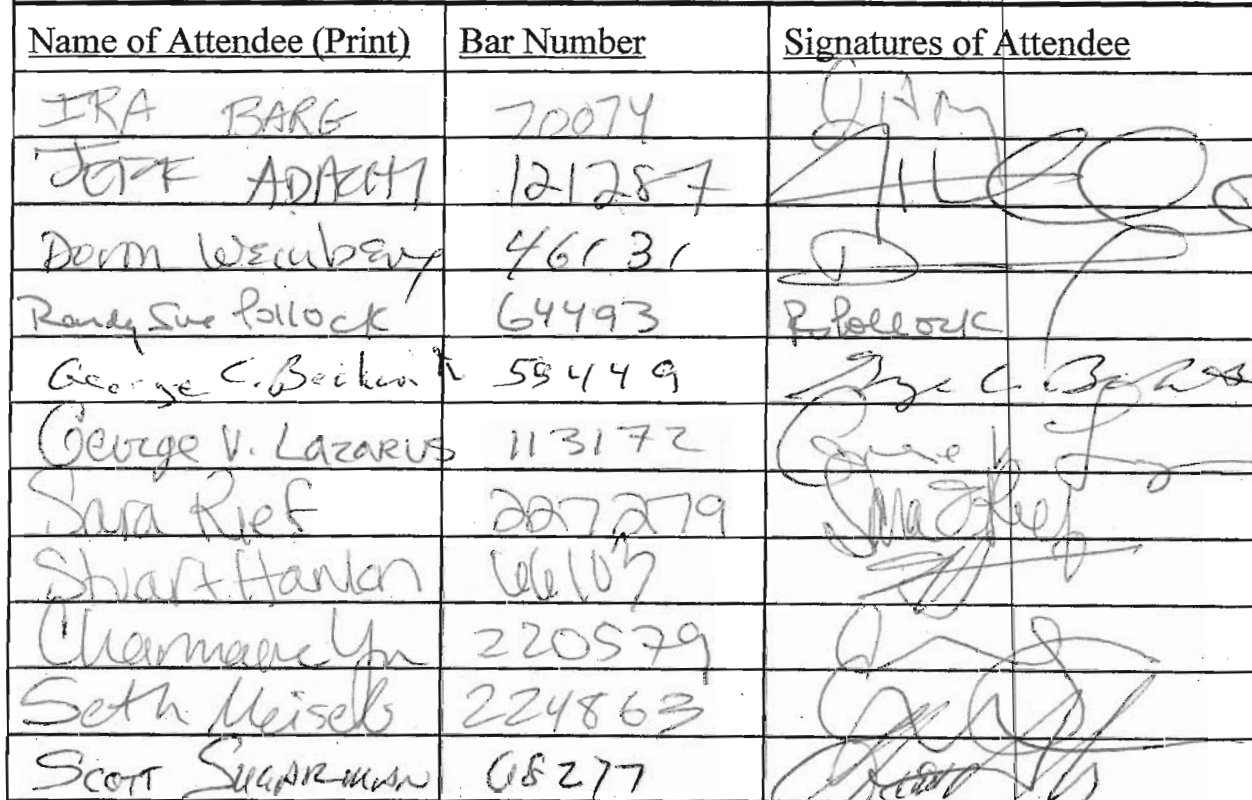 Name of Attendee (Print) Bar Number Signatures of Attendee
IRA BARG 70074
JEFF ADACHI 121287
Doron Weinberg 46131
Randy Sue Pollock 64493 R. Pollock
George C. Beckwith 59449 George C.
George V. Lazarus 113172 George V.
Sara Rief 227279 Sara Rief
Stuart Hanlon 66107
Charmaine Yu 220579
Seth Meisels 224863
SCOTT SUGARMAN 68277